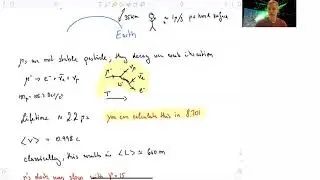 35km
≈ 1μ/s per hand surface
Earth
μs are not stable particle, they decay via weak interaction
μ⁻ → e⁻ + ν̄e + νμ
μ⁻ νμ ν̄e W⁻ e⁻
T
Lifetime ≈ 2.2 μs you can calculate this in 8.701
<v> = 0.998 c
classically, this results in <L> ≈ 660 m
μ's clock runs slow with γ = 15